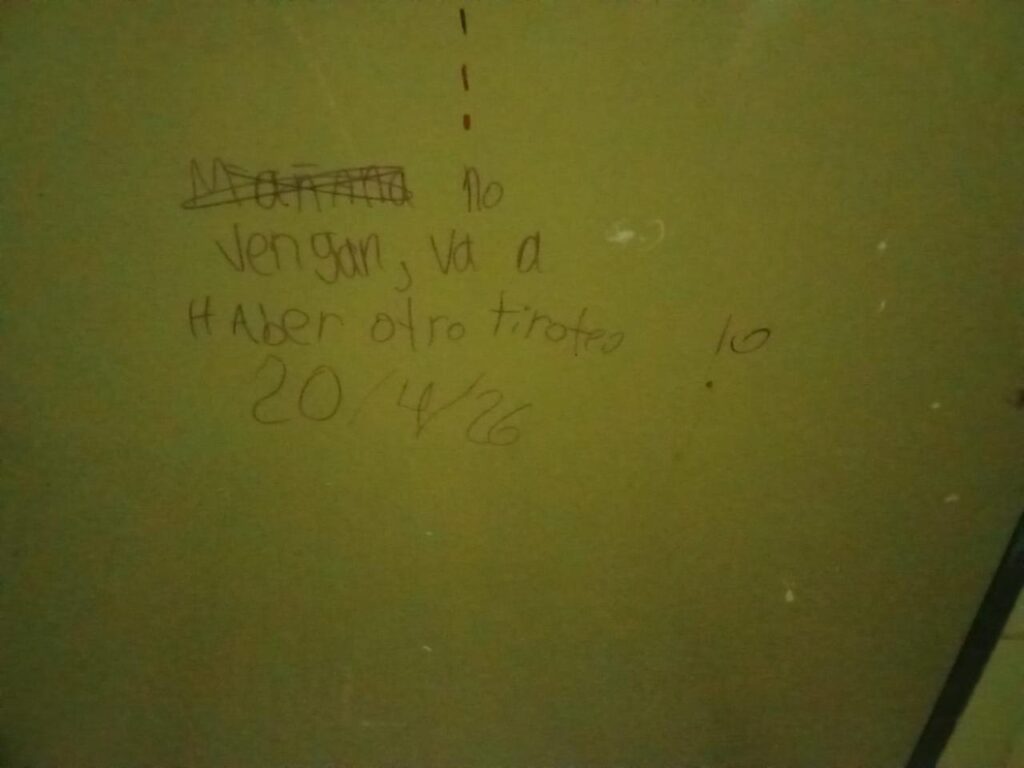 Mañana no
vengan, va a
HAber otro tiroteo 10
20/4/26